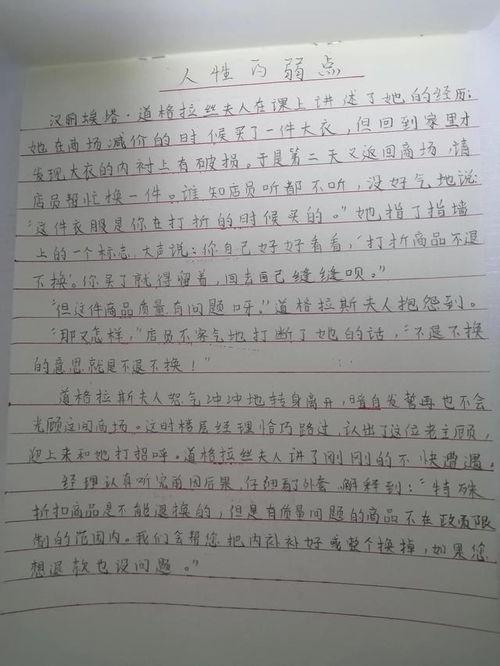 人性的弱点
汉丽埃塔·道格拉丝夫人在课上讲述了她的经历:
她在商场减价的时候买了一件大衣,但回到家里才
发现大衣的内衬上有破损。于是第二天又返回商场,请
店员帮忙换一件。谁知店员听都不听,没好气地说:
“这件衣服是你在打折的时候买的。”她指了指墙
上的一个标志,大声说:你自己好好看看,‘打折商品不退
不换’。你买了就得留着,回去自己缝缝呗。”
“但这件商品质量有问题呀。”道格拉斯夫人抱怨到。
“那又怎样,”店员不客气地打断了她的话,“不退不换
的意思就是不退不换!”
道格拉斯夫人怒气冲冲地转身离开,暗自发誓再也不会
光顾这间商场。这时楼层经理恰巧路过,认出了这位老主顾,
迎上来和她打招呼。道格拉丝夫人讲了刚刚的不快遭遇。
经理认真听完前因后果,仔细看了外套,解释到:“特殊
折扣商品是不能退换的,但是有质量问题的商品不在政策限
制的范围内。我们会帮您把内衬补好或整个换掉,如果您
想退款也没问题。”